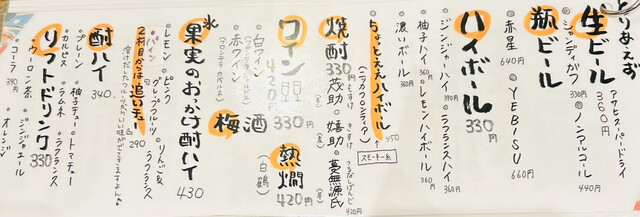 とりあえず
生ビール 390円
アサヒスーパードライ
・シャンディガフ 330円
・ノンアルコール 440円
瓶ビール
・赤星 640円
・YEBISU 660円
ハイボール 330円
・ジンジャーハイ 390円
・ラフランスハイ 360円
・柚子ハイ 360円
・レモンハイボール 360円
・濃いボール 360円
ちょっとええハイボール 450
スモーキー系
焼酎 330円
茂助 嬉助 夢無源氏 420円
ワイン 330円
420円
白ワイン
赤ワイン
梅酒 330円
熱燗 420円
(白鶴)
氷果実のおかけ酎ハイ 430
・レモン
・ピンクグレープフルーツ
・りんご&ラフランス
・パイン
2杯目からは追いチュー 290
酎ハイ 340
・プレーン
・柚子チュー
・トマチュー
・カルピス
・ラムネ
・ラフランス
ソフトドリンク 330
・ウーロン茶
・ジンジャエール
・コーラ 390
・オレンジ